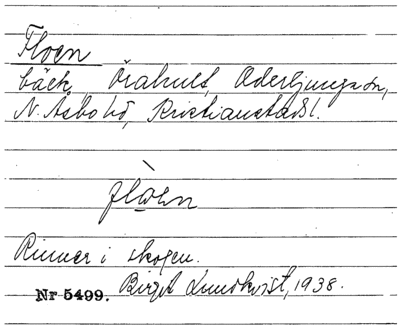 Floen
bäck, Örahult, Oderljunga sn,
N. Åsbo hd, Kristianstads l.
flòen
Rinner i skogen.
Nr 5499. Birgit Lundkvist, 1938.